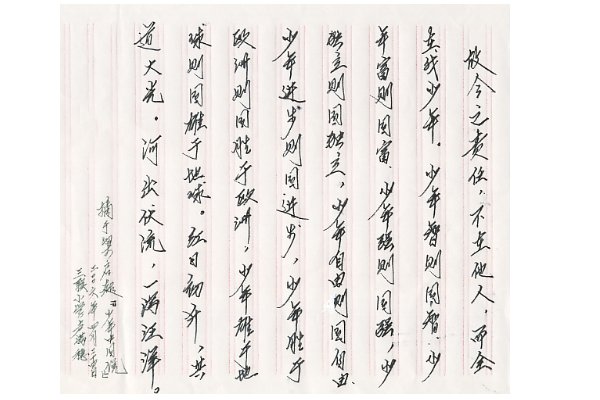 故今之责任，不在他人，而全
在我少年。少年智则国智，少
年富则国富、少年强则国强，少
独立则国独立，少年自由则国自由
少年进步则国进步，少年胜于
欧洲则国胜于欧洲，少年雄于地
球则国雄于地球。红日初升，其
道大光。河出伏流，一泻汪洋。
摘于梁启超《少年中国说》
年四月
小学